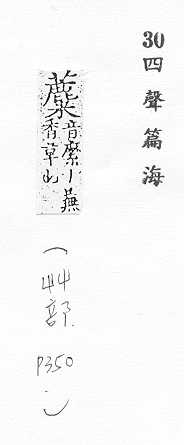 30 四聲篇海
音丨蕪
香草也
(艸部 P350.)